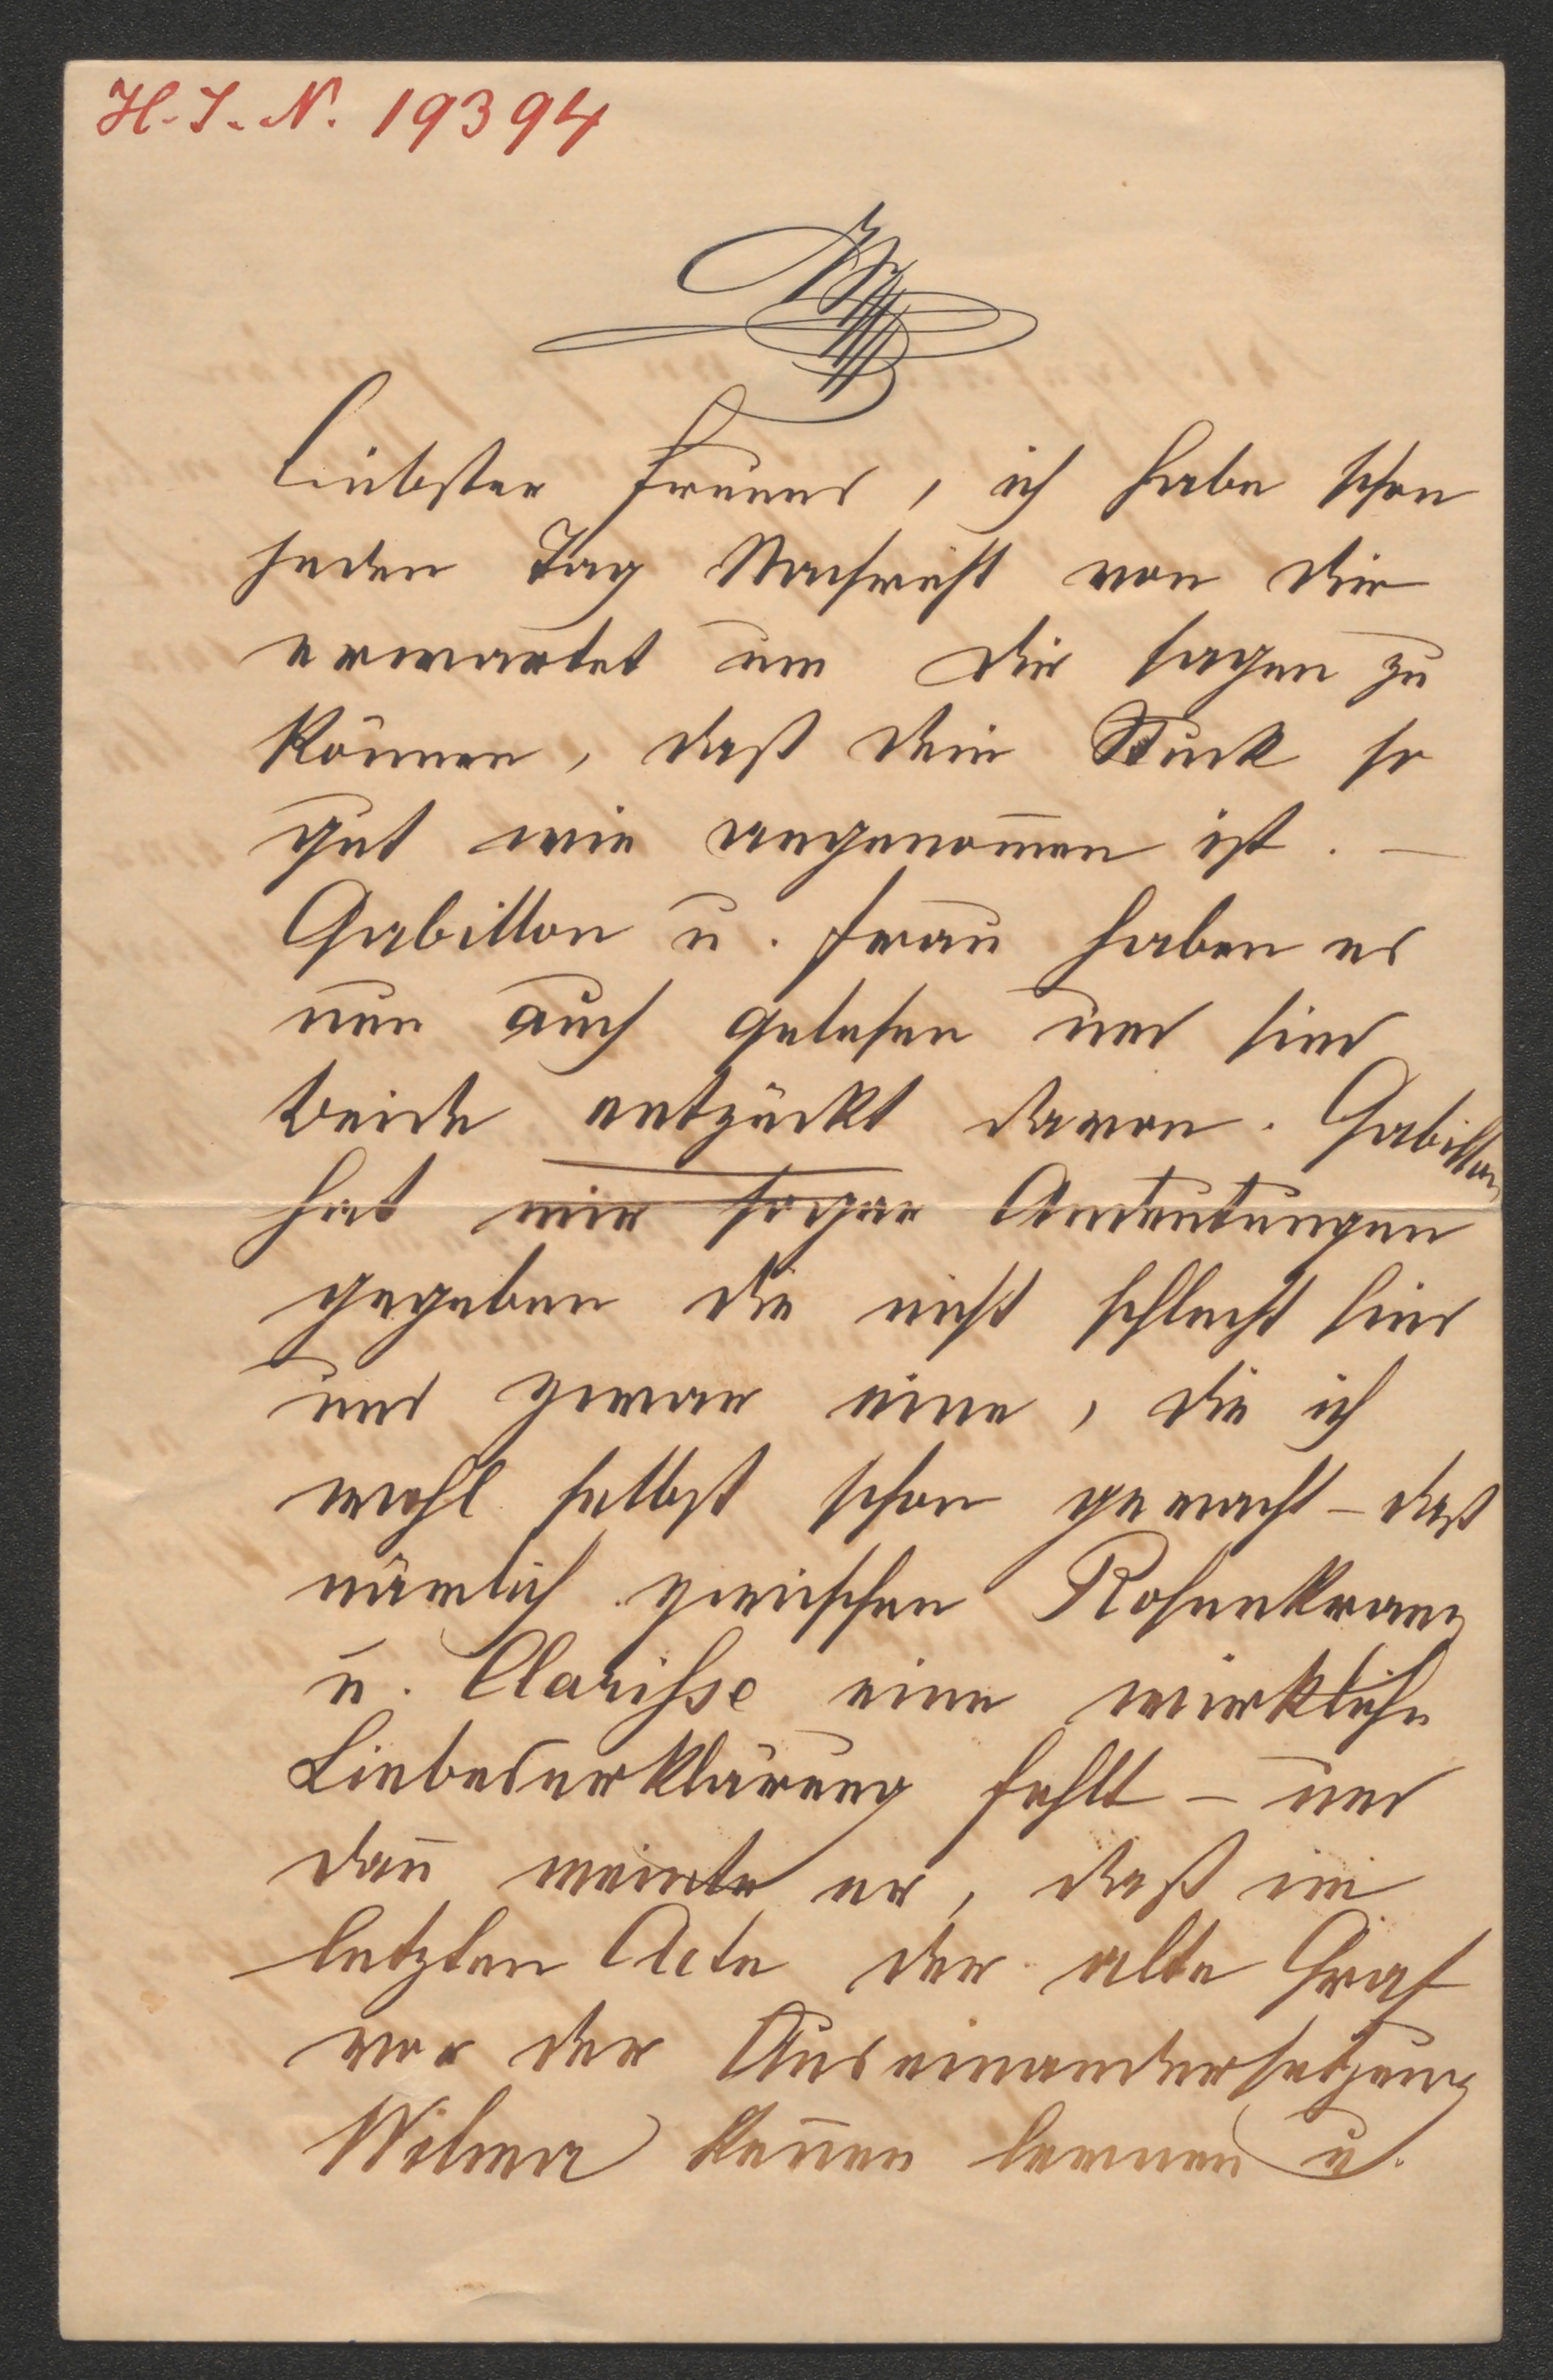 H.I.N. 19394
Liebster Freund, ich habe schon
jeden Tag Nachricht von dir
erwartet um dir sagen zu
können, daß dein Stück so
gut wie angenom̅en ist. —
Gabillon u. Frau haben es
nun auch gelesen und sind
beide entzückt davon. Gabillon
hat mir sogar Andeutungen
gegeben die nicht schlecht sind
und zwar eine, die ich
wohl selbst schon gemacht – daß
nämlich zwischen Rosenkranz
u. Clarisse eine wirkliche
Liebeserklärung fehlt – und
dan̅ meinte er, daß im
letzten Acte der alte Graf
vor der Auseinandersetzung
Wilma ken̅en lernen u.